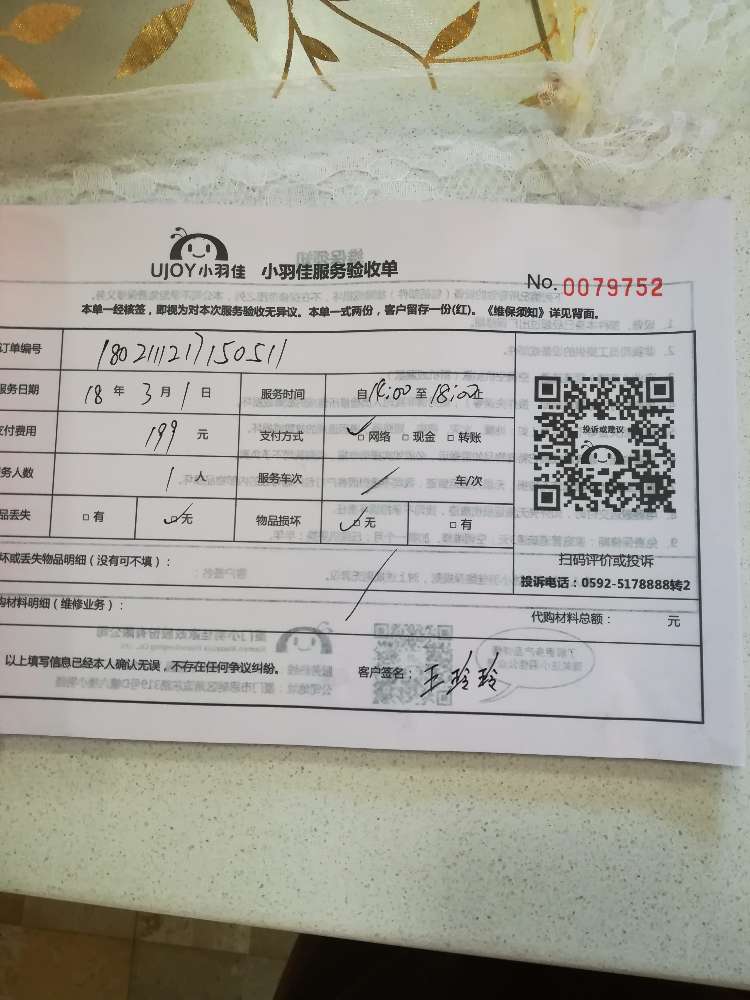 UJOY小羽佳 小羽佳服务验收单
No. 0079752
本单一经核签，即视为对本次服务验收无异议。本单一式两份，客户留存一份(红)。《维保须知》详见背面。
订单编号 1802111217150511
服务日期 18 年 3 月 1 日 服务时间 自14:00 至 18:00止
支付费用 199 元 支付方式 网络 现金 转账
投诉或建议
务人数 1 人 服务车次 / 车/次
品丢失 有 无 物品损坏 无 有
扫码评价或投诉
坏或丢失物品明细（没有可不填）：
投诉电话：0592-5178888转2
购材料明细（维修业务）： 代购材料总额： 元
以上填写信息已经本人确认无误，不存在任何争议纠纷。 客户签名： 王玲玲